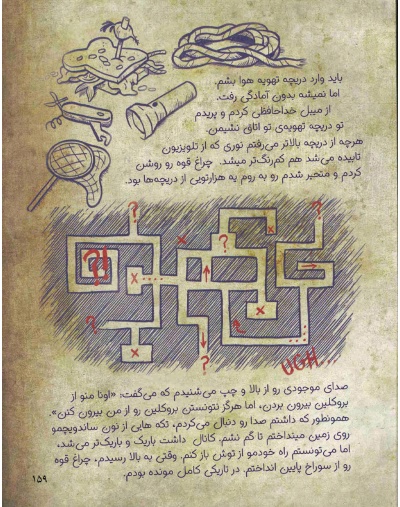 باید وارد دریچه تهویه هوا بشم.
اما نمیشه بدون آمادگی رفت.
از مِیبل خداحافظی کردم و پریدم
تو دریچه تهویه‌ی تو اتاق نشیمن.
هرچه از دریچه بالاتر می‌رفتم نوری که از تلویزیون
تابیده می‌شد هم کم‌رنگ‌تر میشد. چراغ قوه رو روشن
کردم و متحیر شدم رو به روم یه هزارتویی از دریچه‌ها بود.
?
?
x
x
?
?!
x
x
?
?
x
?
UGH...
صدای موجودی رو از بالا و چپ می‌شنیدم که می‌گفت: «اونا منو از
بروکلین بیرون بردن، اما هرگز نتونستن بروکلین رو از من بیرون کنن».
همونطور که داشتم صدا رو دنبال می‌کردم، تکه هایی از نون ساندویچمو
روی زمین مینداختم تا گم نشم. کانال داشت باریک و باریک‌تر می‌شد،
اما می‌تونستم راه خودمو از توش باز کنم. وقتی به بالا رسیدم، چراغ قوه
رو از سوراخ پایین انداختم. در تاریکی کامل مونده بودم.
۱۵۹